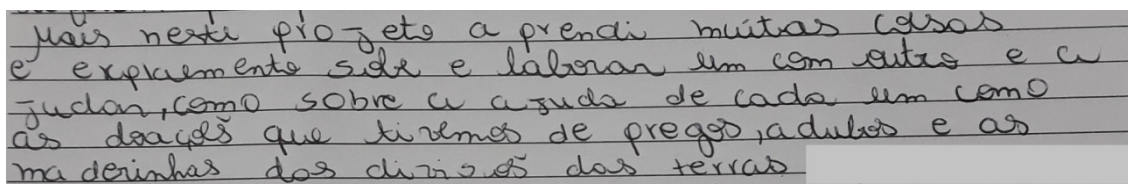 Mais neste projeto a prendi muitas coisas
e expriemento side e laboran um com outro e a
judan, como sobre a ajuda de cada um como
as doações que tivemos de pregos, adubos e as
maderinhas das divisões das terras